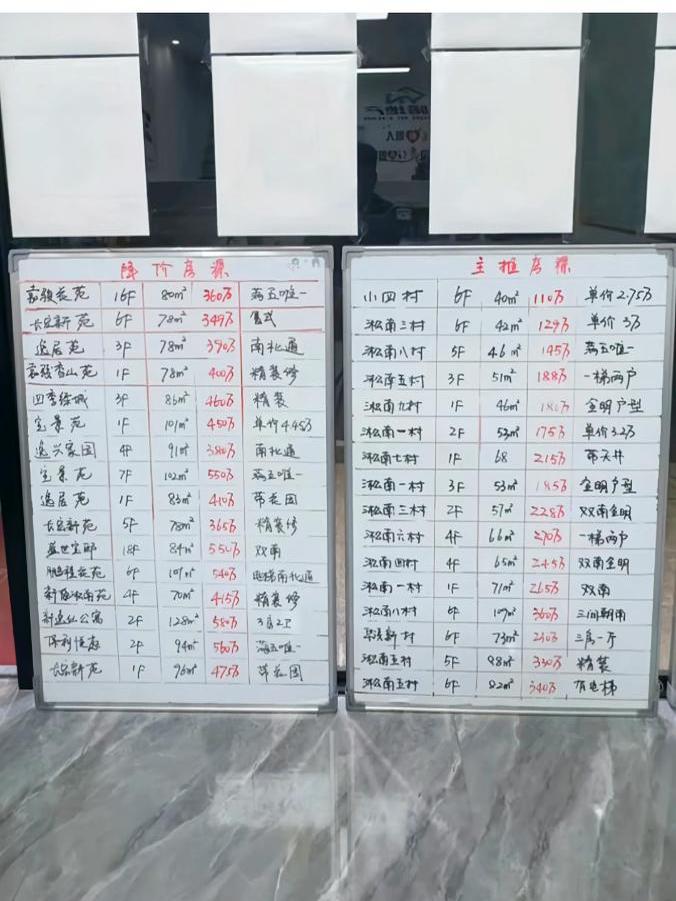 降价房源
嘉骏花苑 16F 80m² 360万 满五唯一
长宏新苑 6F 78m² 349万 复式
逸居苑 3F 78m² 390万 南北通
嘉骏香山苑 1F 78m² 400万 精装修
四季绿城 3F 86m² 460万 精装
宝景苑 1F 101m² 450万 单价4.45万
逸兴家园 4F 91m² 380万 南北通
宝景苑 7F 102m² 550万 满五唯一
逸居苑 1F 83m² 410万 带花园
长宏新苑 5F 78m² 365万 精装修
盛世宝邸 18F 84m² 550万 双南
鹏程花苑 6F 101m² 540万 电梯南北通
新城淞南苑 4F 70m² 415万 精装修
公寓 2F 128m² 580万 3房2卫
保利恒 2F 94m² 560万 满五唯一
长宏新苑 1F 96m² 475万 花园
主推房源
小四村 6F 40m² 110万 单价2.75万
淞南三村 6F 42m² 129万 单价3万
淞南八村 5F 46m² 145万 满五唯一
淞南五村 3F 51m² 188万 一梯两户
淞南九村 1F 46m² 180万 全明户型
淞南一村 2F 53m² 175万 单价3.2万
淞南七村 1F 68 215万 带天井
淞南一村 3F 53m² 185万 全明户型
淞南三村 2F 57m² 228万 双南全明
淞南六村 4F 66m² 270万 一梯两户
淞南四村 4F 65m² 245万 双南全明
淞南一村 1F 71m² 265万 双南
淞南八村 6F 109m² 360万 三间朝南
华浜新村 6F 73m² 210万 三房一厅
淞南五村 5F 88m² 330万 精装
淞南五村 6F 82m² 340万 有电梯